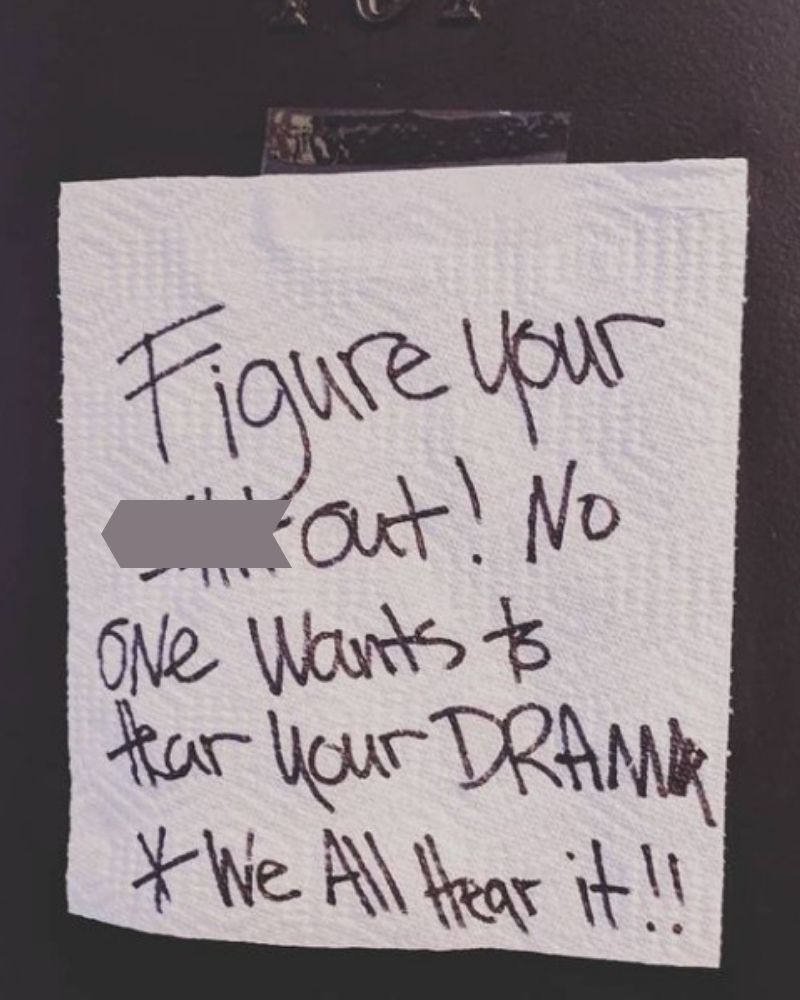 Figure your
out! No
one Wants to
Hear your DRAMA
* We All Hear it!!